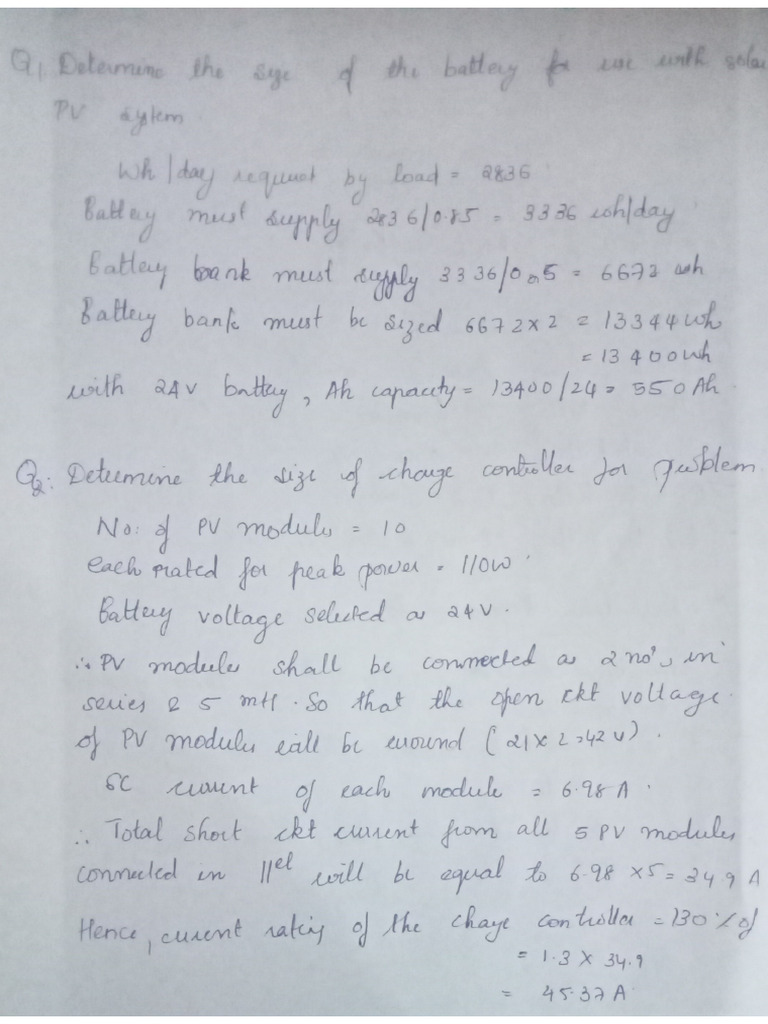 Q1 Determine the size of the battery for use with solar
PV system.
Wh/day request by load = 2836
Battery must supply 2836/0.85 = 3336 wh/day
Battery bank must supply 3336/0.5 = 6672 wh
Battery bank must be sized 6672x2 = 13344wh
= 13400wh
with 24v battery, Ah capacity = 13400/24 = 550Ah
Q2: Determine the size of charge controller for problem
No: of PV modules = 10
each rated for peak power = 110w.
Battery voltage selected as 24v.
∴ PV modules shall be connected as 2 no's in
series & 5 . So that the open ckt voltage
of PV modules be (21x2=42v).
SC current of each module = 6.98A.
∴ Total short ckt current from all 5 PV modules
connected in ||el will be equal to 6.98 x5= 34.9 A
Hence, current rating of the charge controller = 130% of
= 1.3 x 34.9
= 45.37A